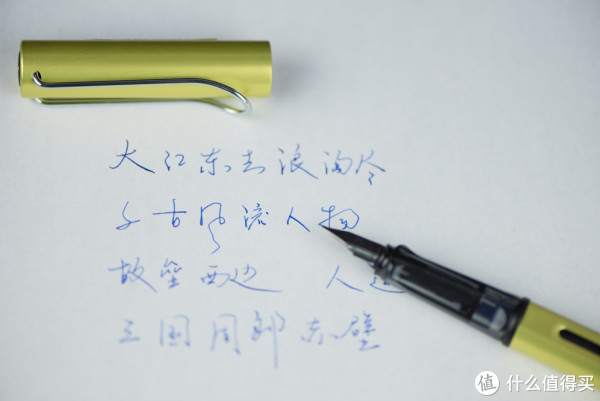 大江东去浪淘尽
千古风流人物
故垒西边 人道
三国周郎赤壁
值 什么值得买